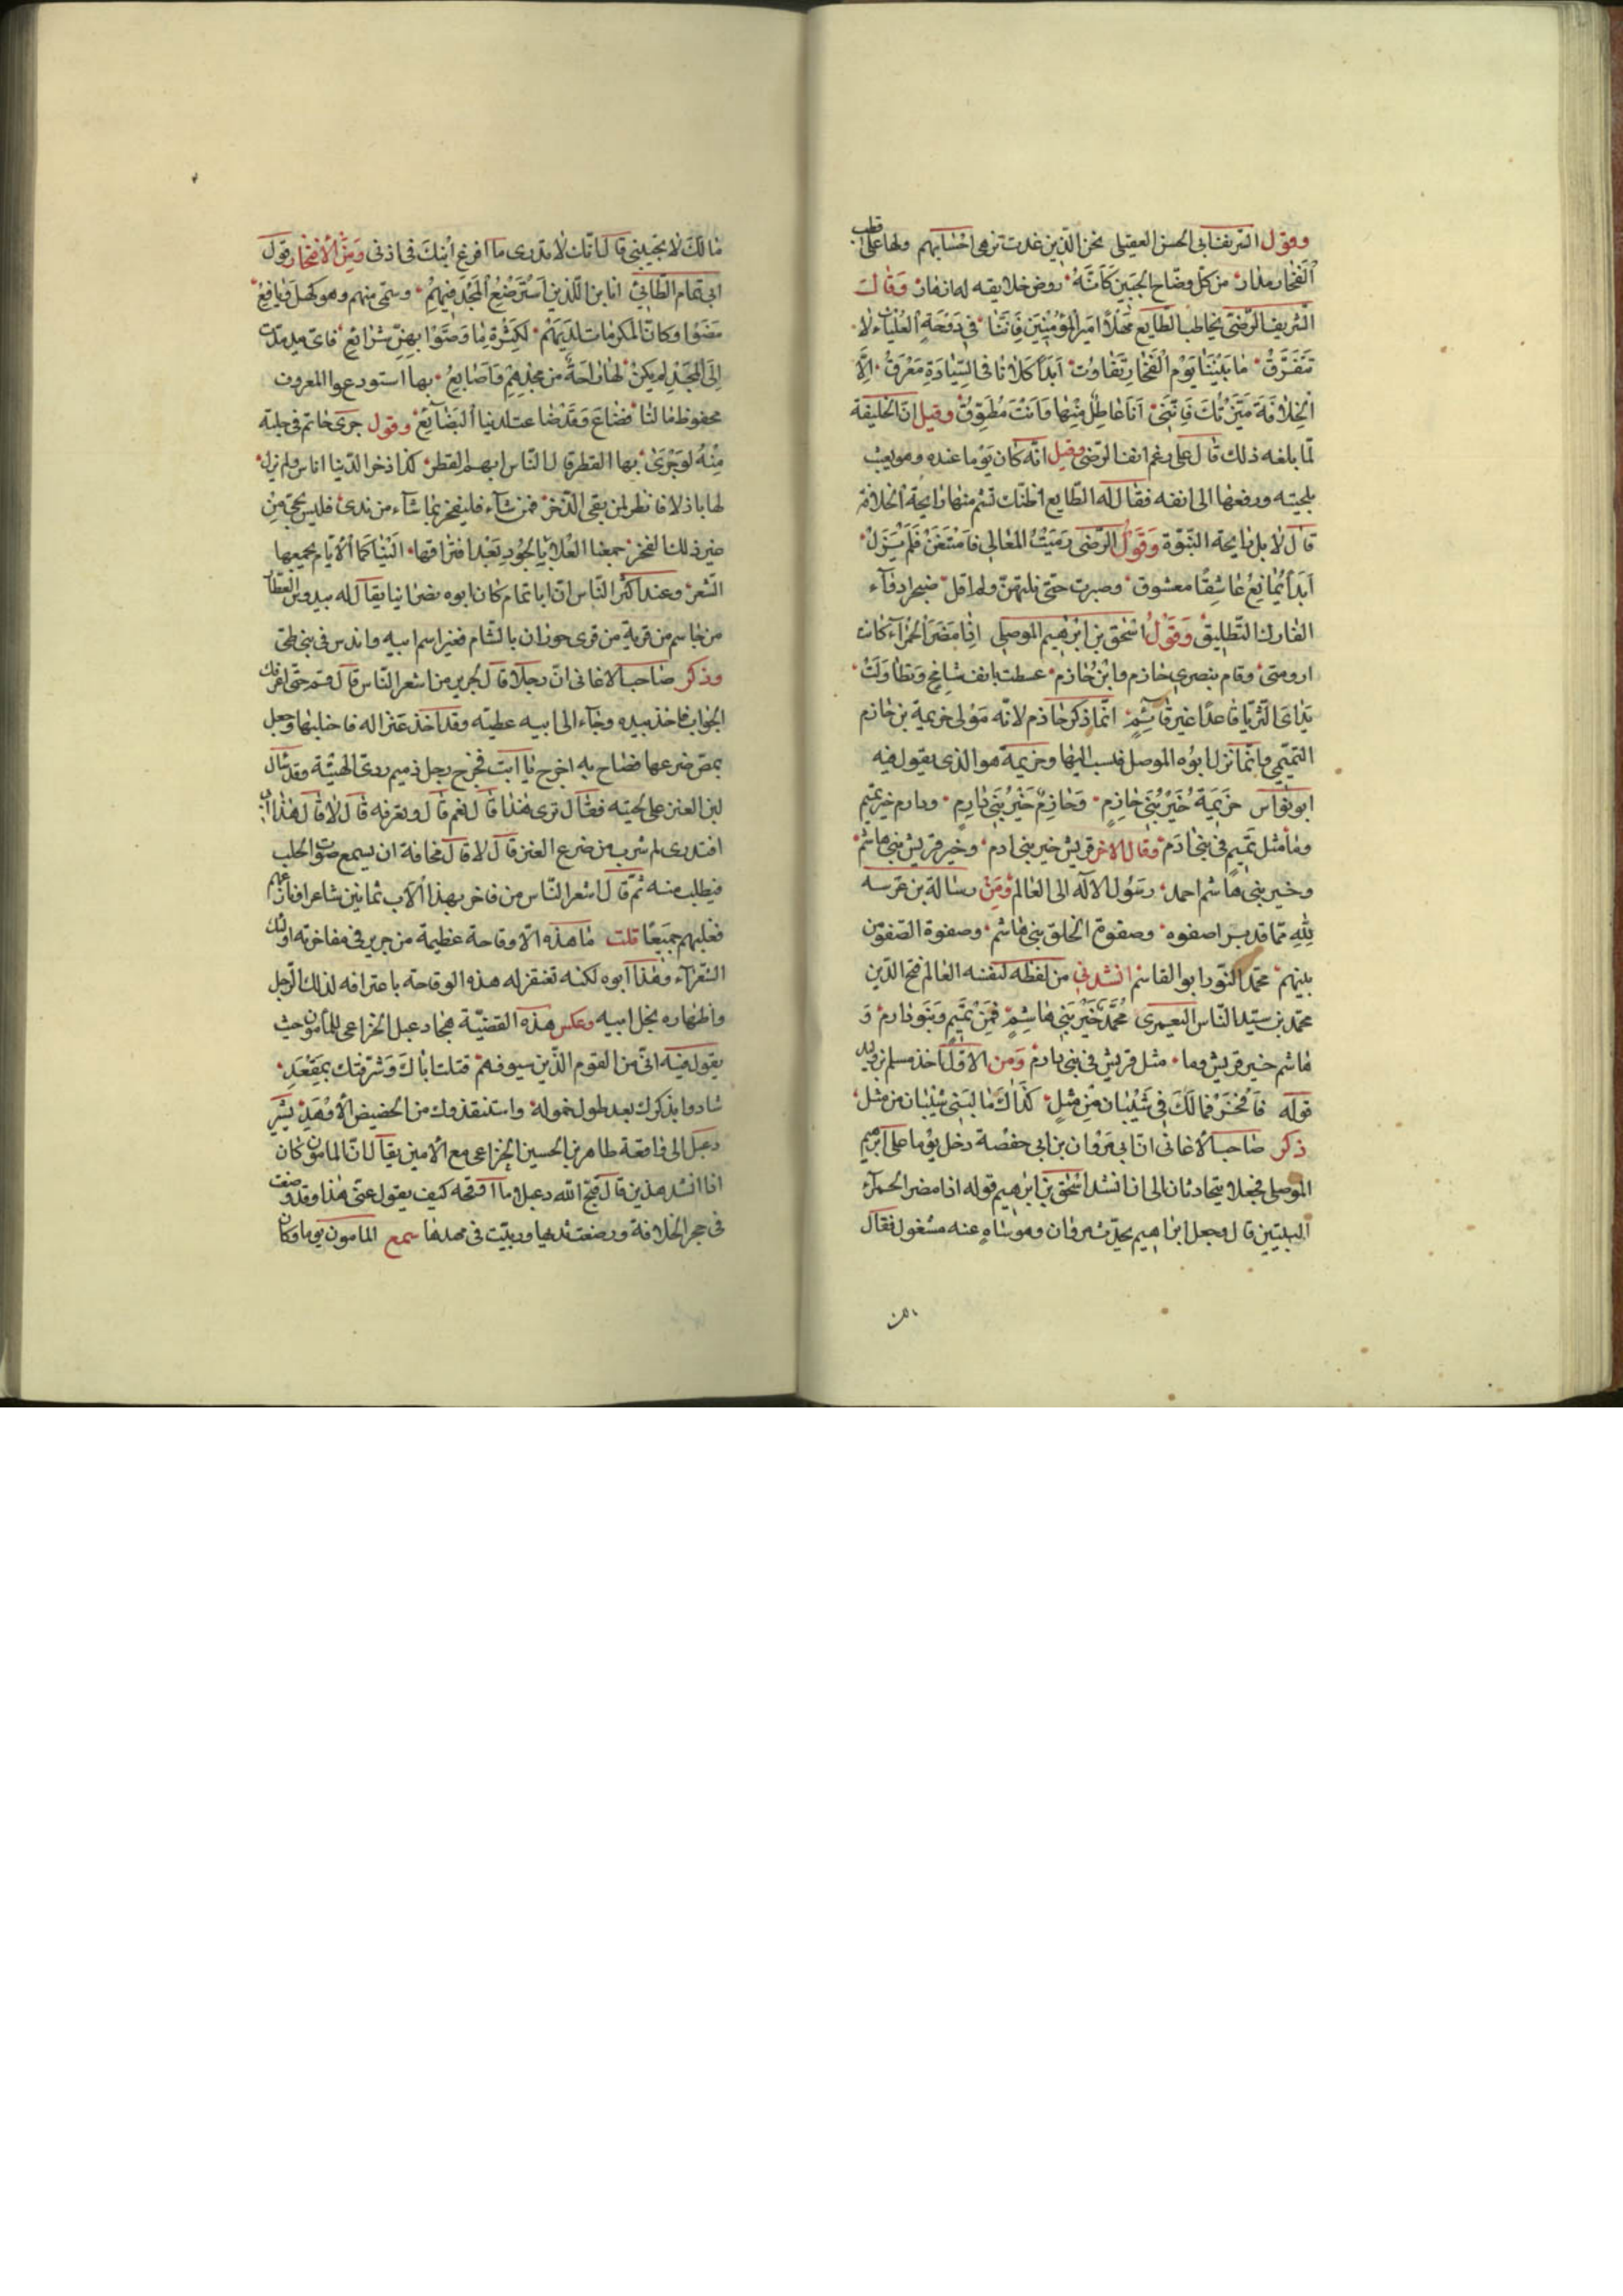 وقول الشريف ابى الحسن العقيلى نحن الذين غدت رحى احسابهم ولها على قطب
الفخار مدار من كل وضاح الجبين كَاَنَّهُ روض خلايقه له ازهار وَقَالَ
الشريف الرضى يخاطب الطايع مَهْلاً اميرَ المؤمِنِينَ فَاِنَّنَا فى دَوْحَةِ العُلْيَاءِ لا
نَتَفَرَّقُ مَا بَيْنَنَا يَوْمَ الْفَخَارِ تَفَاوُت اَبَداً كَلاَنَا فى السِّيَادَةِ مُعْرِقُ اِلاَّ
الْخِلاَفَةَ مَيَّزَتْكَ فَاِنَّنِى اَنَا عَاطِلٌ مِنْهَا وَاَنْتَ مُطَوَّقُ وقيل انّ الخليفة
لمّا بلغه ذلك قال على رغم انف الرضى وقيل انّه كان يَوْمًا عنده وهو يعبث
بلحيته ويرفعها الى انفه فقال له الطايع اظنك تشم منها رايحة الخلافة
قال لا بل رايحة النبوّة وَقَوْلُ الرّضى رُمْتُ الْمَعَالِى فَامْتَنَعْنَ فَلَمْ يَزَلْ
اَبَداً يُمَانِعُ عَاشِقًا معشوق وصبرت حتى نلتهنّ ولم اقل ضجراً دوآء
الفارك التَّطليقُ وَقَوْلُ اسْحٰقَ بنِ اِبْرٰهيم الموصلى اِذَا مُضَرُ الْحَمْرَآءُ كانت
ارومتى وقام بنصرى خازم وابْنُ خازم عطست بانف شامِخٍ وَتَطَاوَلَتْ
يَدَاىَ الثّريّا قَاعِدًا غيرَ قَائِمٍ انّما ذكر خازم لانّه مَوْلى خزيمة بن خازم
التّميْمى وانّما نزل ابُوه الموصل فنسب اليها وخزيمة هو الذى يقول فيه
ابو نُوَاس خُزَيْمَةُ خَيْرُ بَنِى خازِمٍ وَخَازِمٌ خَيْرُ بَنِى دَارِمٍ ودارم خير تميم
ومَا مثل تَمِيم فى بنى اٰدَم وقال الاخر قريش خير بنى ادم وخير قريش بنى هاشم
وخير بنى هاشم احمد رسُول الاله الى العالم وَمِنْ رسالة بن عرسه
لِلّٰهِ ممّا قد برا صفوه وصفوة الخلق بنى هَاشم وصفوة الصّفوة من
بينهم محمّد النّور ابو القاسم انشدنى من لفظه لنفسه العالم فتح الدّين
محمّد بن سيّد النّاس اليعمرى مُحَمَّدٌ خَيْرُ بَنِى هَاشِمٍ فَمِنْ تَمِيمٍ وَبَنُو دَارم وَ
هاشم خير قريش وما مثل قريش فى بنى دَارم وَمِن الاوّل اخذ مسلم بن وليد
قوله فَافْخَرْ فَمَا لَكَ فى شَيْبَانَ مِنْ مَثَلٍ كَذَاكَ مَا لِبَنى شَيْبَان من مثل
ذكر صَاحب الاغانى انّ ابى مَرْوان بن ابى حفصة دخل يَوْما على ابرهيم
الموصلى فجعلا يتحادثان الى ان انشد اسْحٰق بن ابرهيم قوله اذا مضر الحمرآء
البيتين قال وجعل ابراهيم يحدّث مروان وهو ساهٍ عنه مشغول فقال
مَا لكَ لا تجيبنى قال انّك لا تدرى ما افرغ ابنك فى اذنى وَمِنَ الاِفتخار قول
ابى تمام الطّائىّ انا بن الّذين اسْتُرْضِعَ الْمَجْدُ فِيهِمُ وسمّى منهم وهو كهل ويافِعُ
مَضَوْا وكانّ المكرمات لَدَيْهِم لِكَثْرَةِ مَا وَصَّوْا بِهِنّ شرائِعِ فاىّ يد مدّت
اِلَى الْمَجْدِ لم يكن لها رَاحَةٌ من مجدِهِمْ وَاَصَابِعُ بها استودعوا المعروف
محفوظ مالنا فضاع وَقَدْ ضاعت لدينا البَضَآيعُ وقول جرى حاتم فى حلبة
مِنْهُ لوجَرَى بها القطر قال النّاس ايهما القطر كذا ذخر الدّنيا اناس ولم يزل
لها باذلا فانظر لمن بقى الذّخر فمن شآء فليفخر بما شآء من ندى فليس لحىّ مِنْ
غيرنا ذلك الفخر جمعنا العُلا بِالجُودِ بَعْدَ افتراقها الينا كما الأيّام يجمعها
الشّهر وعند اكثر النّاس انّ ابا تمام كان ابوه نصرانيا يقال له بيدوس العطّار
من جاسم من قرية من قرى حوران بالشّام فغيّر اسم ابيه واندس فى بنى طىّ
وذكر صَاحب الاغانى انّ رجلا قال لجرير من اشعر النّاس قال قم حتى اعرفك
الجواب فاخذ بيده وجآء الى ابيه عطيّه وقد اخذ عنزا له فاحتلبها وجعل
يمصّ ضرعها فصَاح به اخرج يا ابت فخرج رجل ذميم ردىّ الهيئة وقد سال
لبن العنز على لحيته فقال ترى هٰذا قال نعم قال وتعرفه قال لا قال هٰذا ابى
افتدرى لم شرب من ضرع العنز قال لا قال مخافة ان يسمع صوت الحلب
فيطلب منه ثمّ قال اشعر النّاس من فاخر بهذا الاَب ثمانين شاعرا وقارعهم
فغلبهم جميعًا قلت مَا هذه الاّ وقاحة عظيمة من جرير فى مفاخرته اولئك
الشعرآء وهٰذا ابوه لكنه تغتفر له هذه الوقاحة باعترافه لذلك الرّجل
واظهاره بخل ابيه وعكس هٰذه القضيّة هجا دعبل الخزاعى للمأمون حيث
يقول فيه انّى من القوم الّذين سيوفهم قتلت اباكَ وَشَرّفتك بمَقْعَدِ
شادوا بذكرك بعد طول خموله واستنقذوك من الحضيض الاَوْهَدِ يشير
دعبل الى واقعة طاهر بن الحسين الخزاعى مع الامين يقال انّ المامون كان
اذا انشد هذين قال قبّح اللّه دعبل ما اوقحه كيف يقول عنّى هٰذا وقد وضعت
فى حجر الخلافة ورضعت ثديها وربّيت فى مهدها سمع المامون يوما وكان